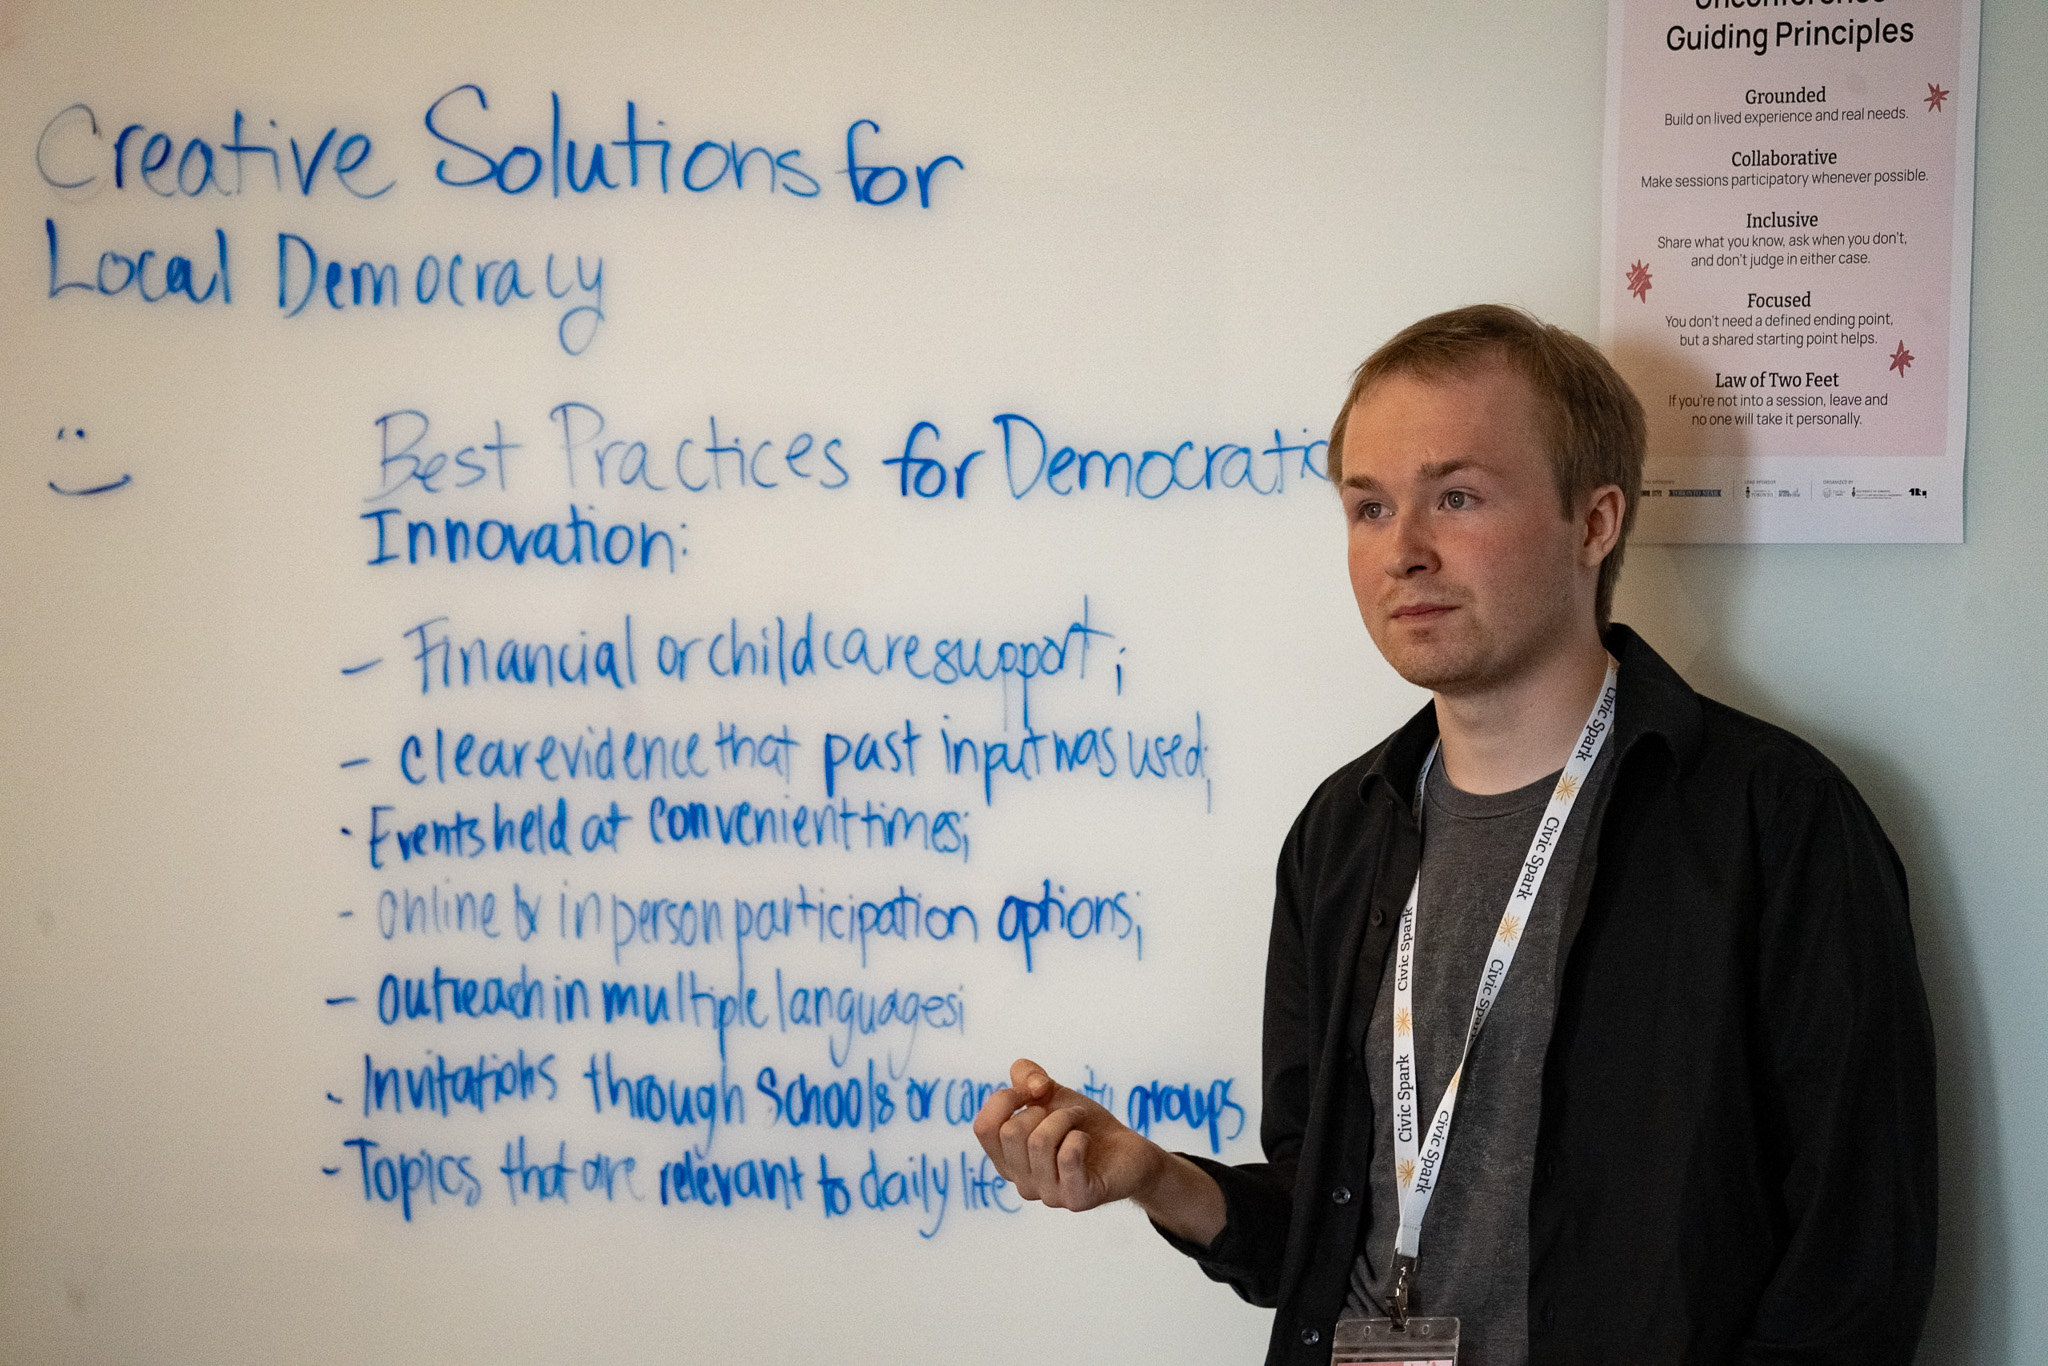 Creative Solutions for
Local Democracy
Best Practices for Democratic
Innovation:
- Financial or childcare support;
- clear evidence that past input was used;
· Events held at convenient times;
- online & in person participation options;
- outreach in multiple languages;
- Invitations through schools or groups
- Topics that are relevant to daily life
Unconference
Guiding Principles
Grounded
Build on lived experience and real needs.
Collaborative
Make sessions participatory whenever possible.
Inclusive
Share what you know, ask when you don't,
and don't judge in either case.
Focused
You don't need a defined ending point,
but a shared starting point helps.
Law of Two Feet
If you're not into a session, leave and
no one will take it personally.
TORONTO STAR
Civic Spark
Civic Spark
Civic Spark
Civic Spark
Civic Spark
Civic Spark